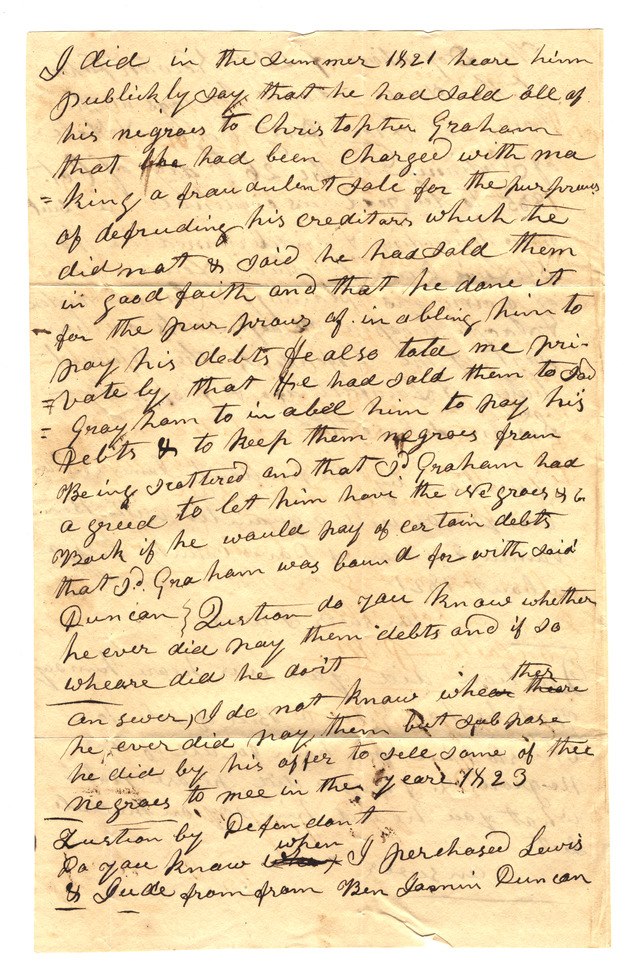 I did in the summer 1821 heare him
publickly say that he had sold all of
his negroes to Christopher Graham
that he had been Charged with ma
= king a fraudulent sale for the purprous
of defruding his creditars which he
did not & said he had sold them
in good faith and that he done it
for the purprous of inabling him to
pay his debts He also told me pri-
= vately that He had sold them to Sad
= Grayham to inabel him to pay his
Debts & to keep them negroes from
Being scattered and that Sd Graham had
agreed to let him have the Negroes &c
Back if he would pay of certain debts
that Sd Graham was bound for with said
Duncan } Qustion do you know whether
he ever did pay them debts and if so
wheare did he do it
answer, I do not know whether
he ever did pay them but subpose
he did by his offer to sell some of thee
negroes to mee in the yeare 1823
Qustion by Defendant
Do you know when I perchased Lewis
& Jude from from Benjamin Duncan